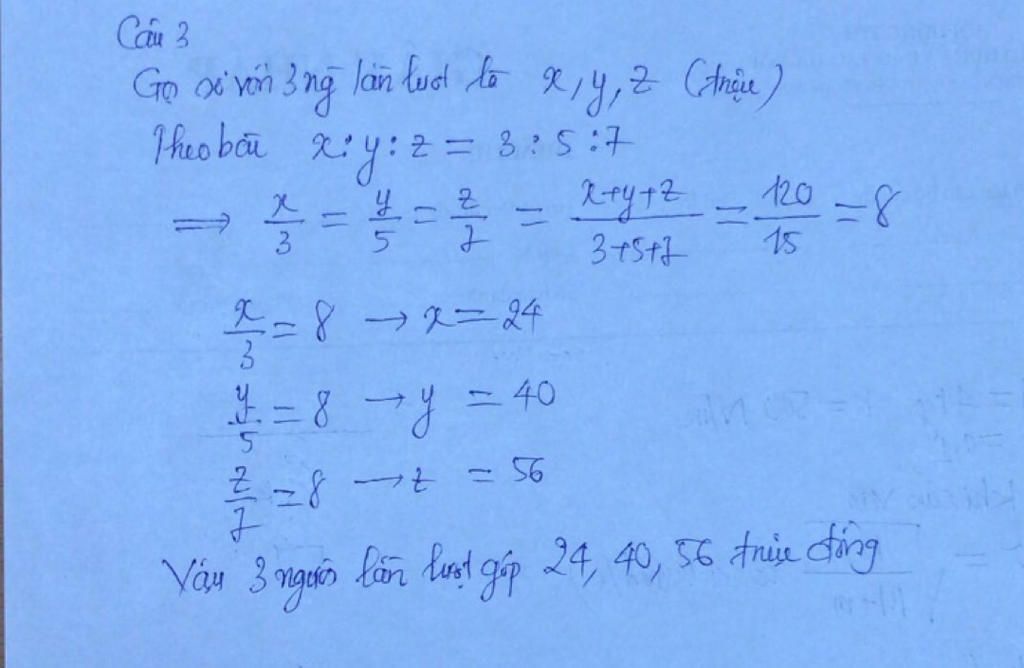 Câu 3
Gọi số vốn 3 ng lần lượt là x, y, z (triệu)
Theo bài x : y : z = 3 : 5 : 7
⟹ x/3 = y/5 = z/7 = (x+y+z)/(3+5+7) = 120/15 = 8
x/3 = 8 → x = 24
y/5 = 8 → y = 40
z/7 = 8 → z = 56
Vậy 3 người lần lượt góp 24, 40, 56 triệu đồng